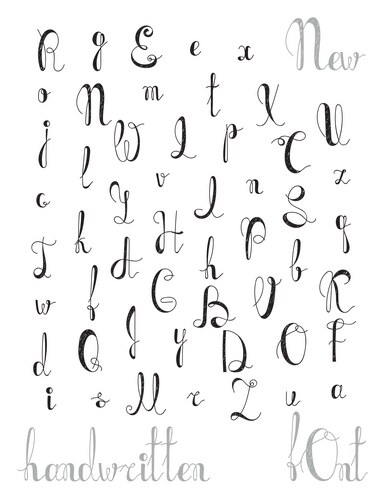 R g E e x New
o N m t X
j l W I p C U
c Y v L n S z
T k A H h P b q
w f J G B V K
d Q y D O F
i s M r Z u a
handwritten fOnt